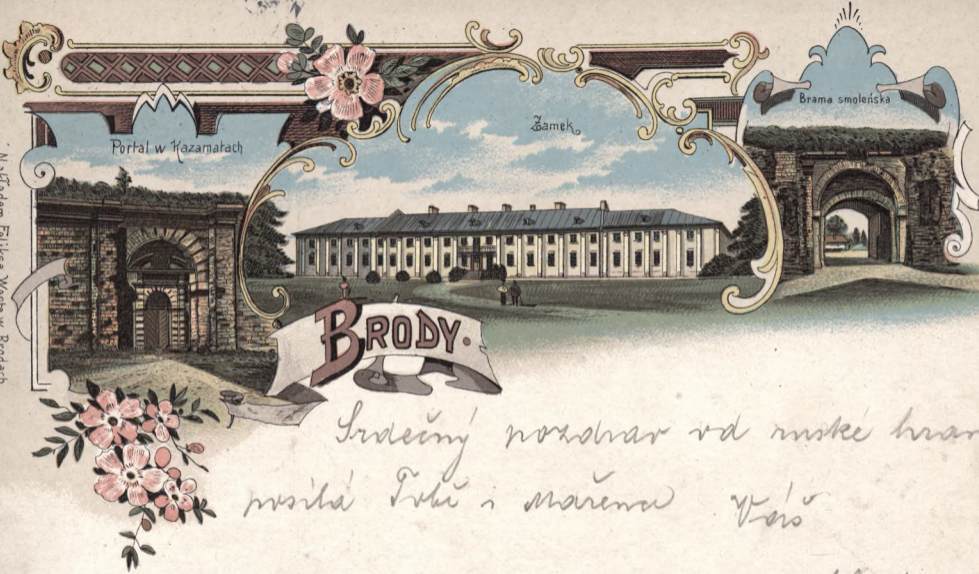 Portal w Kazamatach
Zamek
Brama smoleńska
Nakładem Feliksa Westa w Brodach
BRODY.
Srdečný pozdrav od ruské hran
posílá Tobě i Mařence Váš